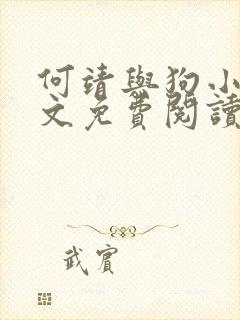 何靖與狗小
文免費閱讀
武賓